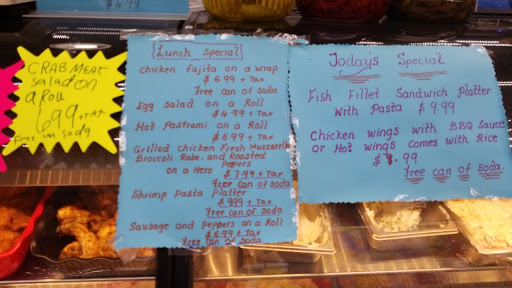 CRAB MEAT
Salad on
a Roll
6.99 + TAX
Free can Soda
Lunch Special
Chicken Fajita on a wrap
$6.99 + Tax
Free Can of Soda
Egg Salad on a Roll
$4.99 + Tax
Hot Pastrami on a Roll
$6.99 + Tax
Grilled chicken Fresh Mozzarella
Broccoli Rabe and Roasted
Peppers
on a Hero
$7.99 + Tax
Free can of Soda
Shrimp Pasta Platter
$9.99 + Tax
Free can of Soda
Sausage and Peppers on a Roll
$6.99 + Tax
Free can of Soda
Today's Special
Fish Fillet Sandwich Platter
with Pasta $9.99
Chicken wings with BBQ Sauce
or Hot wings comes with Rice
$ .99
Free can of Soda